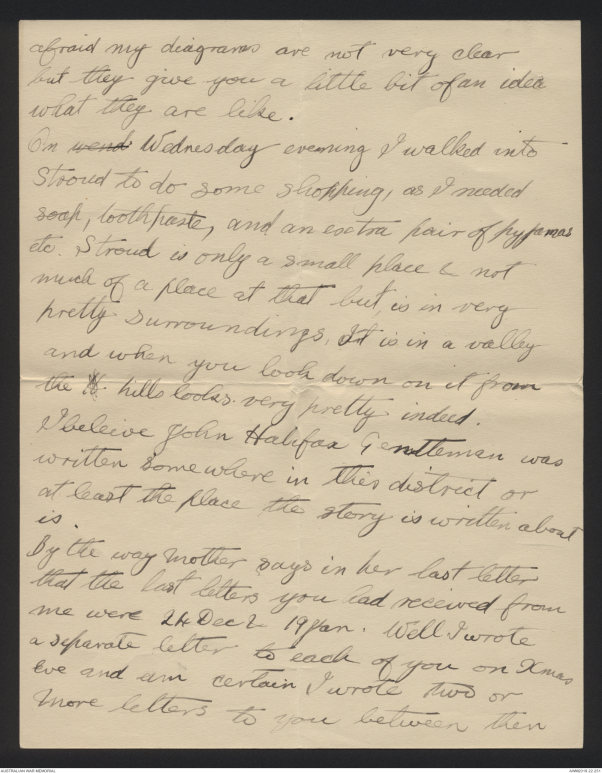 afraid my diagrams are not very clear
but they give you a little bit of an idea
what they are like.
On wend Wednesday evening I walked into
Stroud to do some shopping, as I needed
soap, toothpaste, and an exetra pair of pyjamas
etc. Stroud is only a small place & not
much of a place at that but, is in very
pretty surroundings. It is in a valley
and when you look down on it from
the hills looks very pretty indeed.
I beleive John Halifax Gentleman was
written somewhere in this district or
at least the place the story is written about
is.
By the way Mother says in her last letter
that the last letters you had received from
me were 24 Dec & 19 Jan. Well I wrote
a separate letter to each of you on Xmas
Eve and am certain I wrote two or
more letters to you between then
AUSTRALIAN WAR MEMORIAL